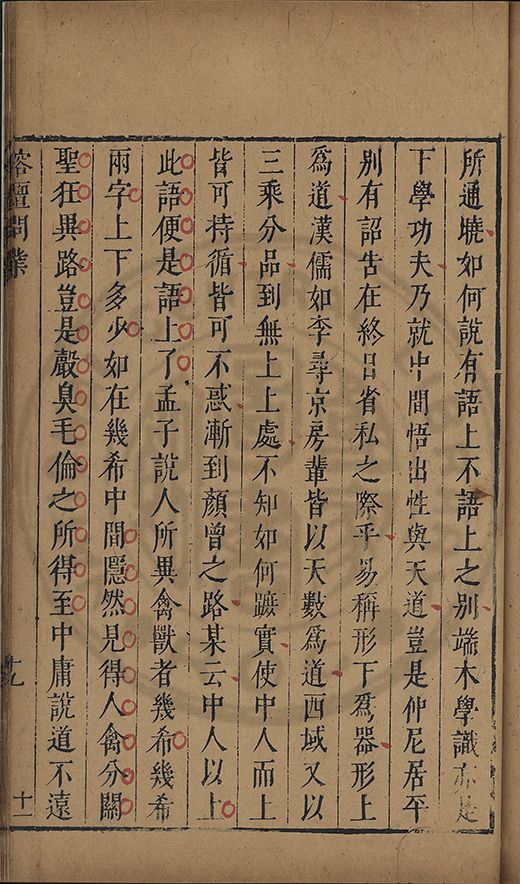 所通曉如何說有語上不語上之別端木學識亦是
下學功夫乃就中間悟出性與天道豈是仲尼居平
別有詔告在終日省私之際乎易稱形下為器形上
為道漢儒如李尋京房輩皆以天數為道西域又以
三乘分品到無上上處不知如何蹠實使中人而上
皆可持循皆可不惑漸到顏曾之路某云中人以上
此語便是語上了孟子說人所異禽獸者幾希幾希
兩字上下多少如在幾希中間隱然見得人禽分關
聖狂異路豈是聲臭毛倫之所得至中庸說道不遠
榕壇問業
十九
十一